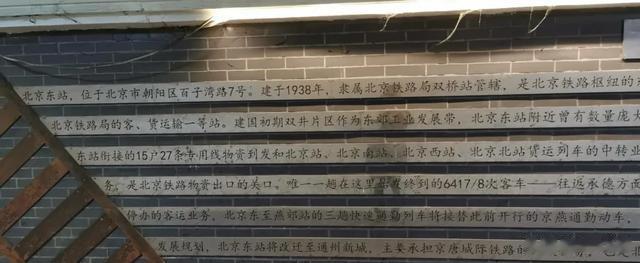 北京东站，位于北京市朝阳区百子湾路7号。建于1938年，隶属北京铁路局双桥站管辖，是北京铁路枢纽的
北京铁路局的客、货运输一等站。建国初期双井片区作为东郊工业发展带，北京东站附近曾有数量庞大
东站衔接的15户27条专用线物资到发和北京站、北京南站、北京西站、北京北站货运列车的中转业
务。是北京铁路物资出口的关口。唯一一趟在这里出发终到的6417/8次客车——往返承德方面
停办的客运业务。北京东至燕郊站的三趟快速通勤列车将接替此前开行的京燕通勤动车，
发展规划，北京东站将改迁至通州新城，主要承担京唐城际铁路的